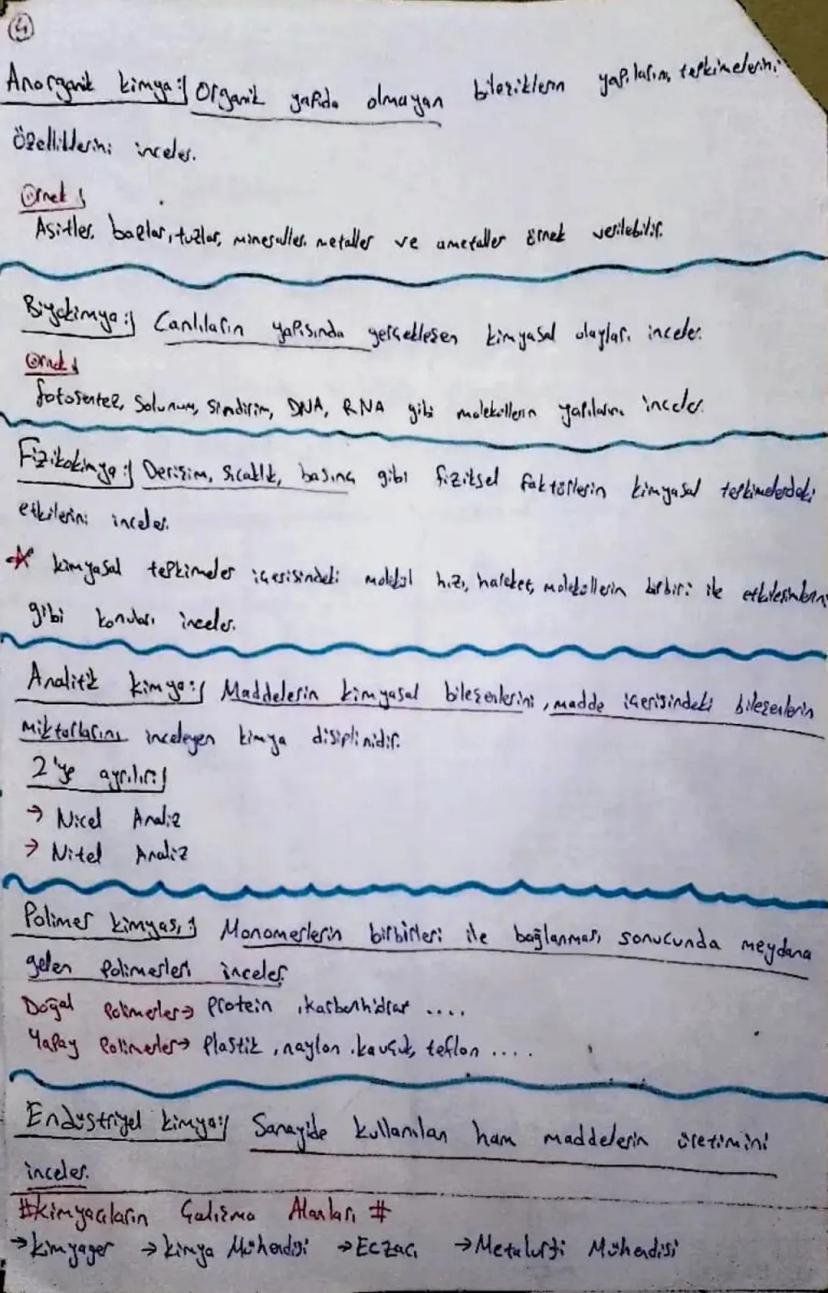 4
Anorganik kimya: Organik yapıda olmayan bileşiklerin yapılarını, tepkimelerini
özelliklerini inceler.
Örnek
Asitler, bazlar, tuzlar, mineraller, metaller ve ametaller örnek verilebilir.
Biyokimya: Canlıların yapısında gerçekleşen kimyasal olayları inceler.
Örnek
fotosentez, Solunum, Sindirim, DNA, RNA gibi moleküllerin yapılarını inceler.
Fizikokimya: Derişim, sıcaklık, basınç gibi fiziksel faktörlerin kimyasal tepkimelerdeki
etkilerini inceler.
* kimyasal tepkimeler içerisindeki molekül hızı, hareket, moleküllerin birbiri ile etkileşimlerini
gibi konuları inceler.
Analitik kimya: Maddelerin kimyasal bileşenlerini, madde içerisindeki bileşenlerin
miktarlarını inceleyen kimya disiplinidir.
2'ye ayrılır:
→ Nicel Analiz
→ Nitel Analiz
Polimer kimyası: Monomerlerin birbirleri ile bağlanması sonucunda meydana
gelen polimerleri inceler
Doğal polimerler → Protein, karbonhidrat ....
Yapay Polimerler → Plastik, naylon, kauçuk, teflon ....
Endüstriyel kimya: Sanayide kullanılan ham maddelerin üretimini
inceler.
#Kimyacıların Çalışma Alanları #
→ kimyager → kimya Mühendisi → Eczacı → Metalurji Mühendisi